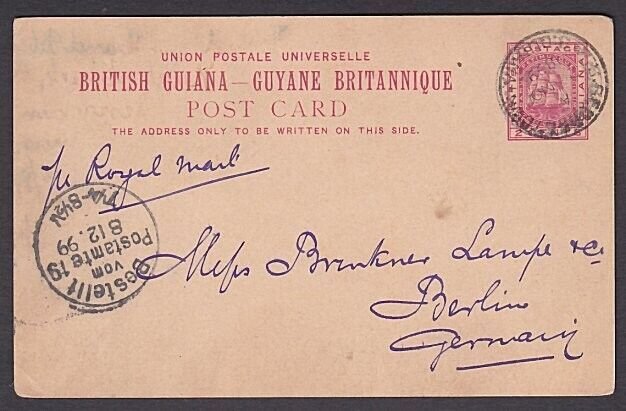 UNION POSTALE UNIVERSELLE
BRITISH GUIANA—GUYANE BRITANNIQUE
POST CARD
THE ADDRESS ONLY TO BE WRITTEN ON THIS SIDE.
POSTAGE
GUIANA
pr Royal Mail
Bestellt
vom
Postamte 19
8 12. 99
7¼-8½N
Messrs Brenkner Lampe & Co
Berlin
Germany